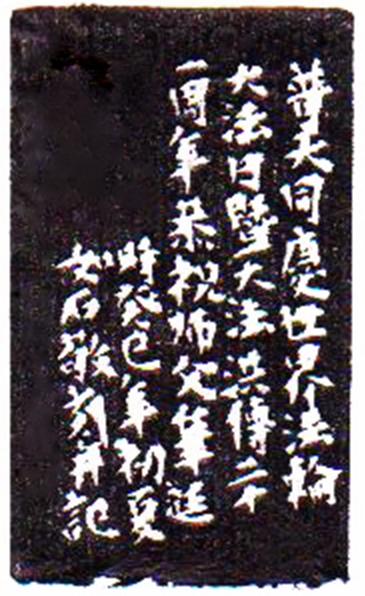 普天同慶世界法輪
大法日暨大法洪傳二十
一周年恭祝师父華誕
時癸巳年初夏
如石敬刻并記